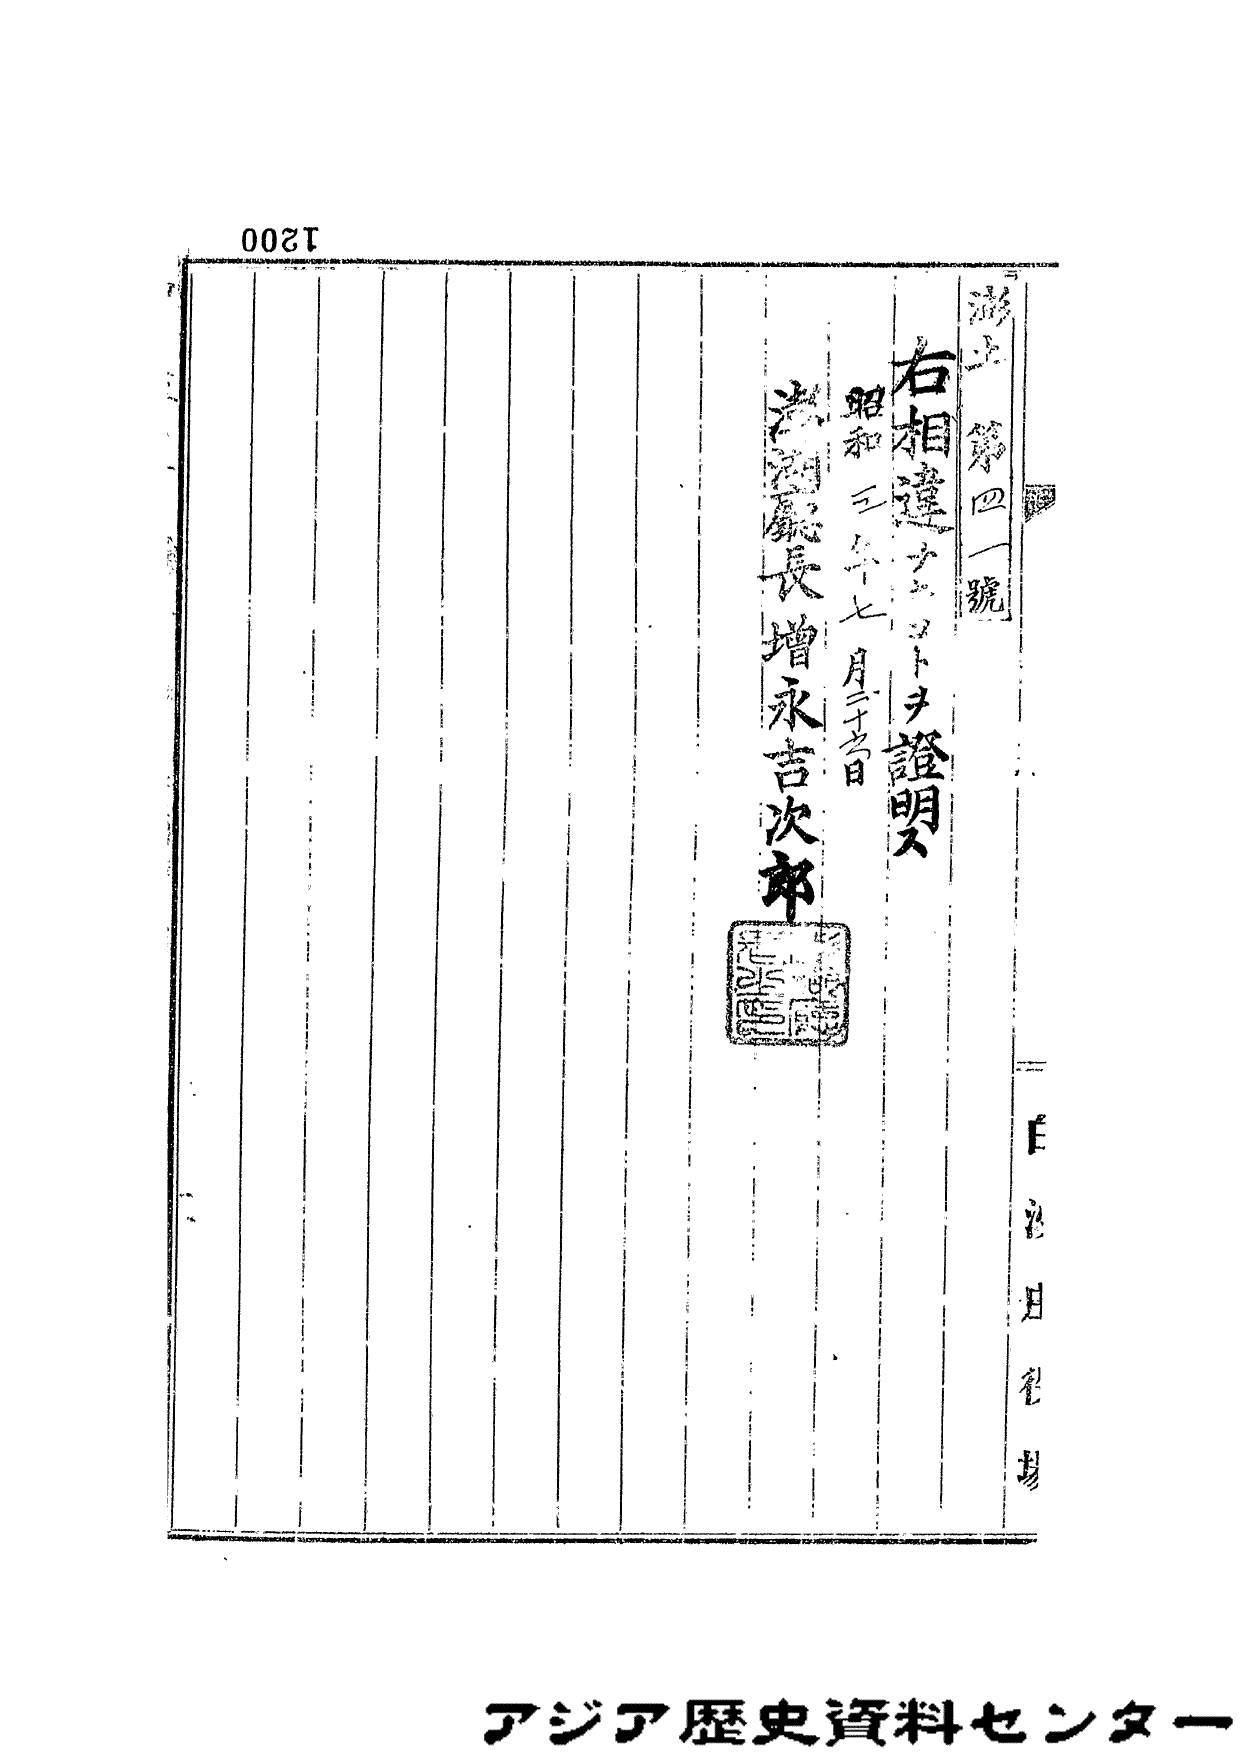 1200
澎土 第四一號
右相違ナキコトヲ證明ス
昭和三年七月二十六日
澎湖廳長增永吉次郎
アジア歴史資料センター